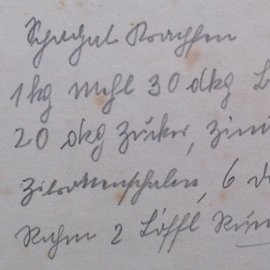 Schachtel Krachffen
1 kg Mehl 30 dkg B
20 dkg Zucker, Zim
Zitronenschalen, 6 d
Rahm 2 Löffl Rum